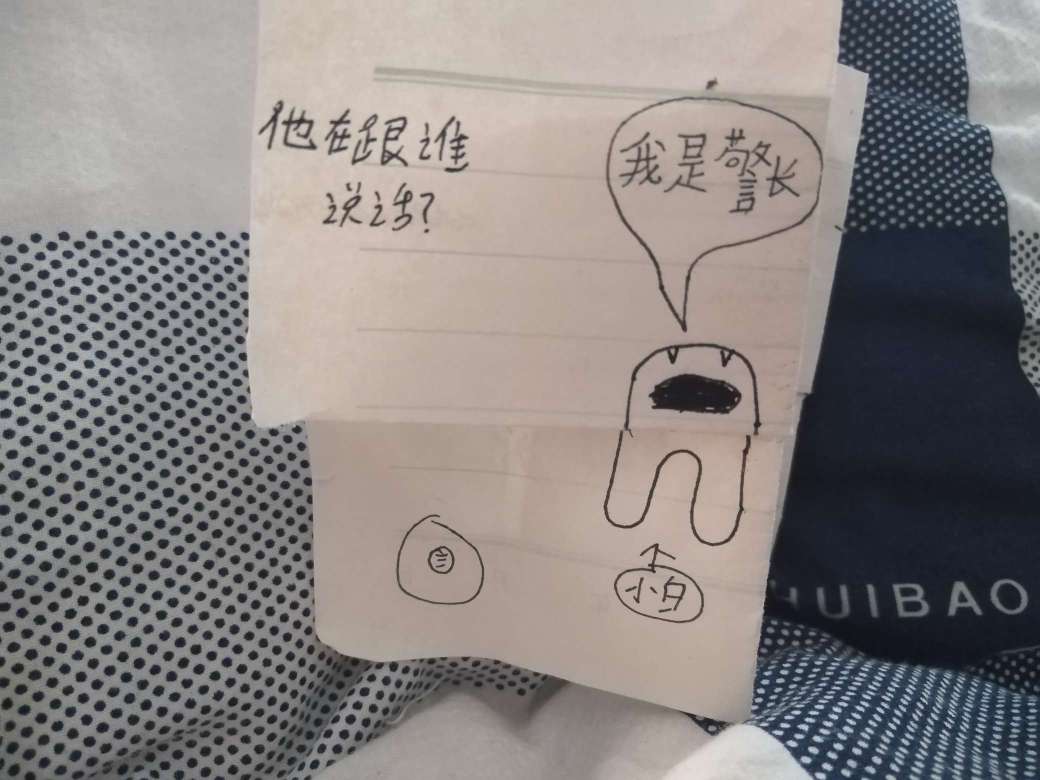 他在跟谁
说话?
我是警长
小夕
HUIBAO